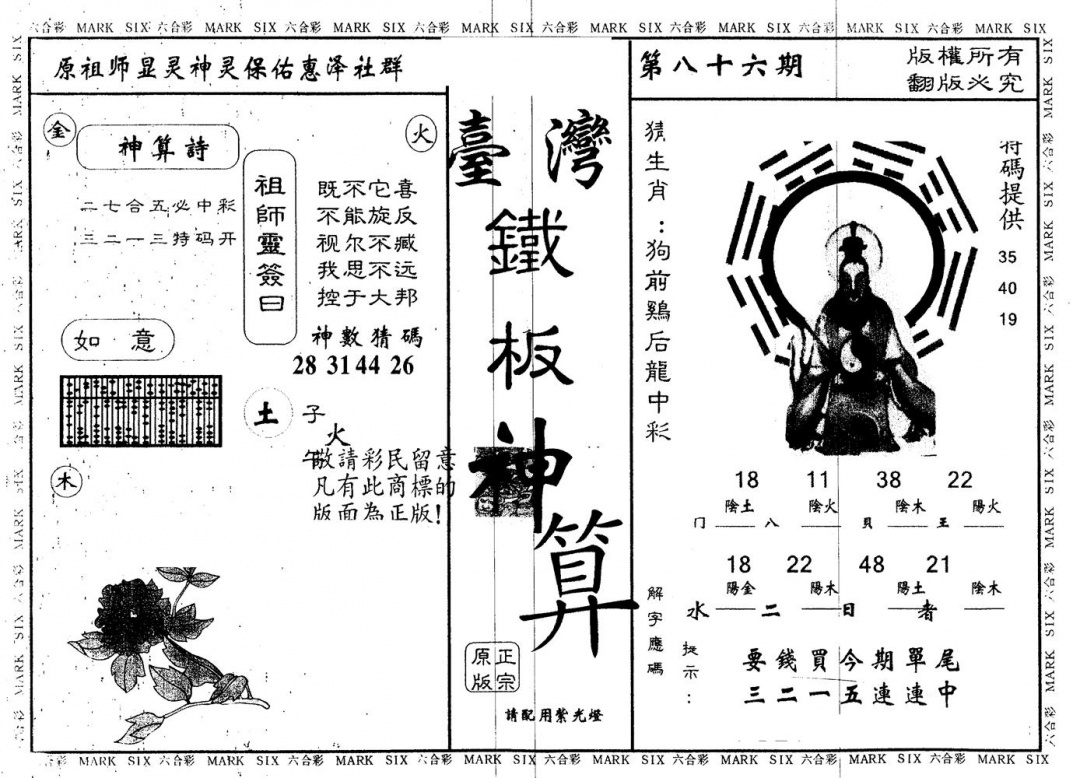 六合彩 MARK SIX 六合彩 MARK SIX 六合彩 MARK SIX 六合彩 MARK SIX 六合彩 MARK SIX 六合彩 MARK SIX 六合彩 MARK SIX 六合彩 MARK SIX
原祖师显灵神灵保佑惠泽社群
金
神算詩
二七合五必中彩
三二一三特码开
火
祖師靈簽曰
既不它喜
不能旋反
视尔不臧
我思不远
控于大邦
神數猜碼
28 31 44 26
如意
土
子
火
午
敬請彩民留意
凡有此商標的
版面為正版!
木
臺灣
鐵板神算
正宗
原版
請配用紫光燈
第八十六期
版權所有
翻版必究
猜生肖:狗前鷄后龍中彩
特碼提供
35
40
19
18 11 38 22
陰土 陰火 陰木 陽火
门 八 貝 王
18 22 48 21
陽金 陽木 陽土 陰木
水 二 日 者
解字應碼
提示:
要錢買今期單尾
三二一五連連中
MARK SIX 六合彩 MARK SIX 六合彩 MARK SIX 六合彩 MARK SIX 六合彩 MARK SIX 六合彩 MARK SIX 六合彩 MARK SIX 六合彩 MARK SIX